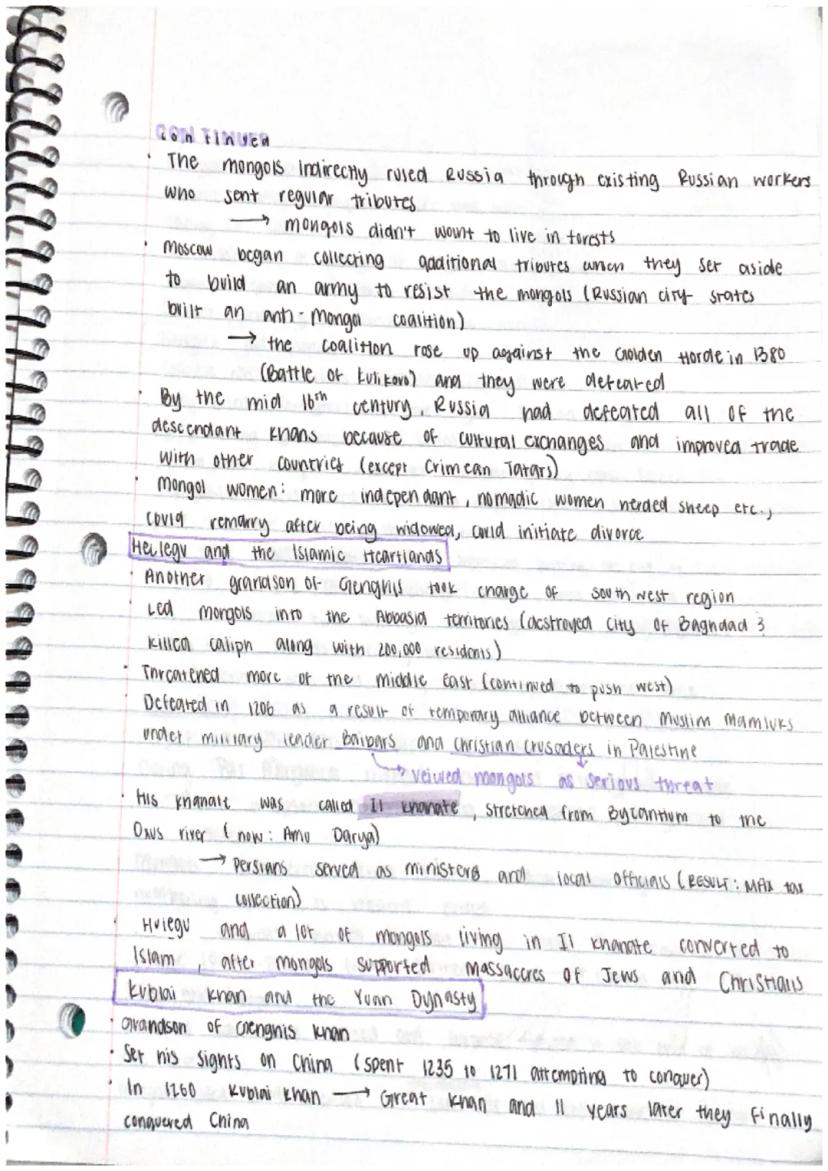 CONTINUED
· The mongols indirectly ruled Russia through existing Russian workers
who sent regular tributes
→ mongols didn't want to live in forests
· Moscow began collecting additional tributes when they set aside
to build an army to resist the mongols (Russian city states
built an anti-Mongol coalition)
→ the coalition rose up against the Golden Horde in 1380
(Battle of Kulikovo) and they were defeated
· By the mid 16th century, Russia had defeated all of the
descendant khans because of cultural exchanges and improved trade
with other countries (except Crimean Tatars)
· Mongol women: more independant, nomadic women herded sheep etc.,
could remarry after being widowed, could initiate divorce
Hulegu and the Islamic Heartlands
· Another grandson of Genghis took charge of southwest region
· Led mongols into the Abbasid territories (destroyed city of Baghdad &
killed caliph along with 200,000 residents)
· Threatened more of the middle East (continued to push west)
· Defeated in 1206 as a result of temporary alliance between Muslim Mamluks
under military leader Baibars and Christian Crusaders in Palestine
→ veiwed mongols as serious threat
· His khanate was called Il khanate, stretched from Bycantium to the
Oxus river (now: Amu Darya)
→ Persians served as ministers and local officials (RESULT: MAX tax
collection)
· Hulegu and a lot of mongols living in Il khanate converted to
Islam, after mongols supported massaccres of Jews and Christians
Kublai Khan and the Yuan Dynasty
· Grandson of Genghis Khan
· Set his sights on China (spent 1235 to 1271 attempting to conquer)
· In 1260 Kublai Khan → Great Khan and 11 years later they finally
conquered China